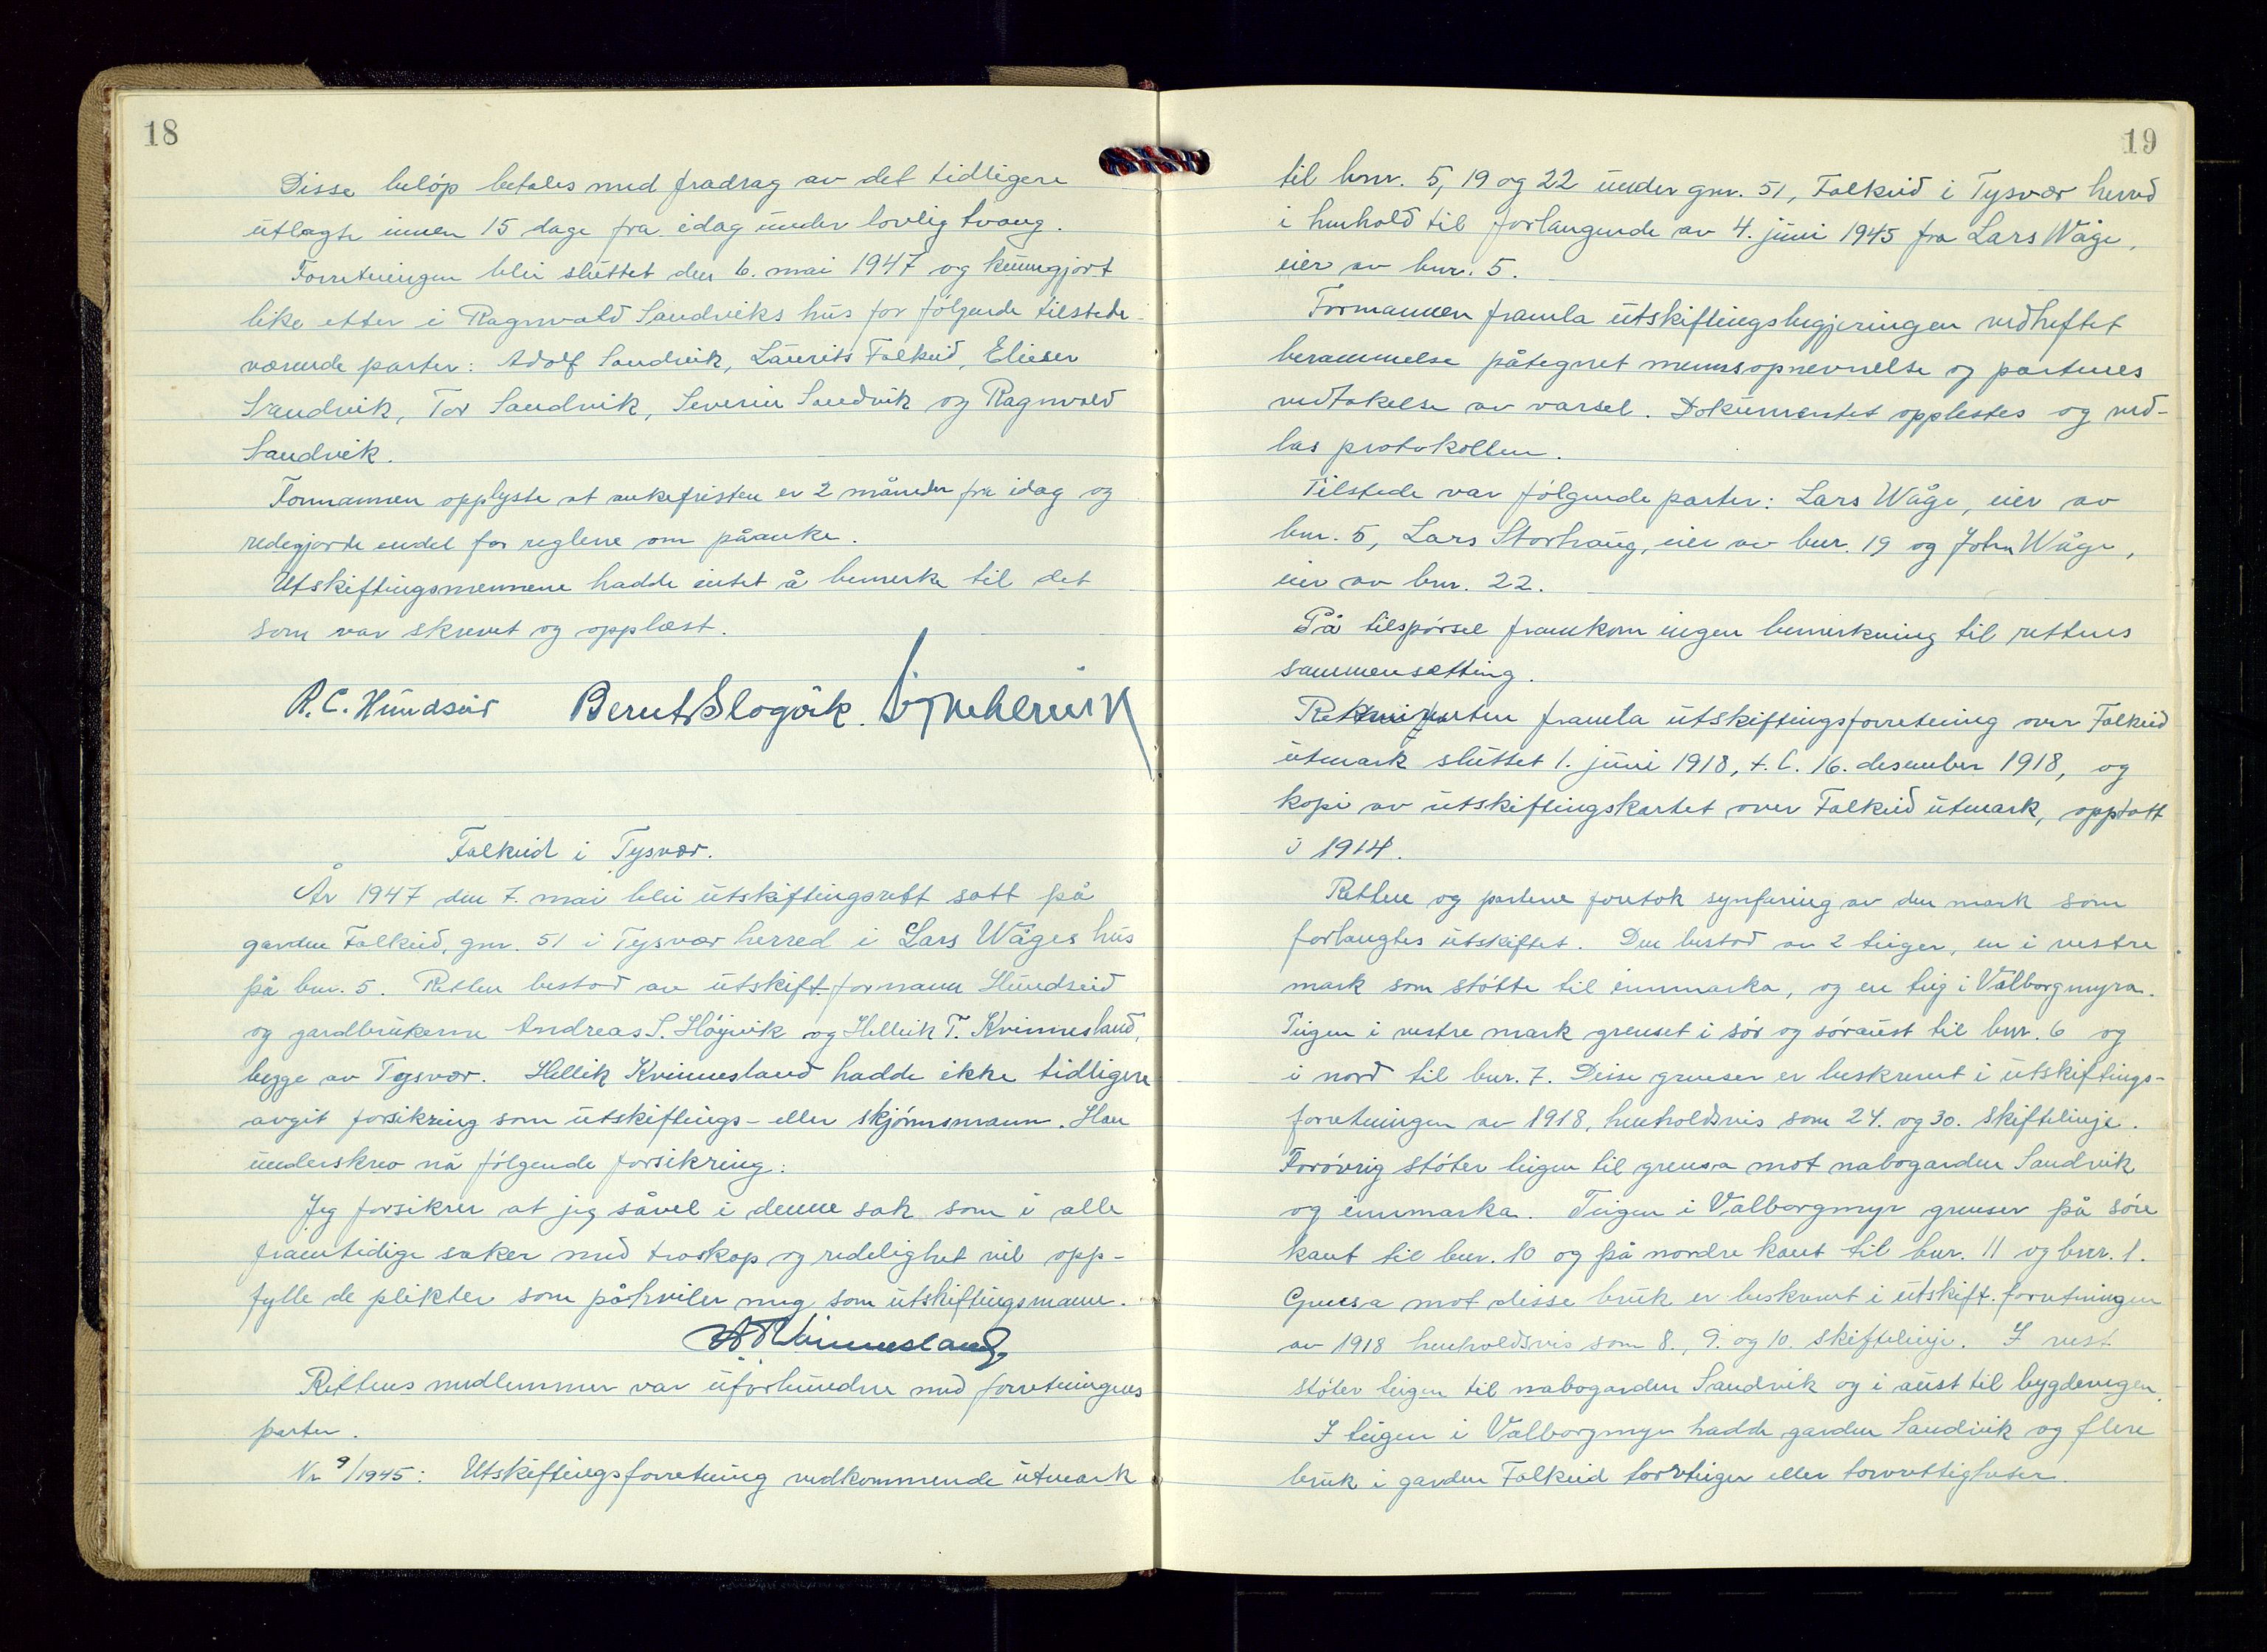 18
Disse beløp betales med fradrag av det tidligere
utlagte innen 15 dage fra idag under lovlig tvang.
Forretningen blei sluttet den 6. mai 1947 og kunngjort
like etter i Ragnvald Sandviks hus for følgende tilstede-
værende parter: Adolf Sandvik, Laurits Falkeid, Elieser
Sandvik, Tor Sandvik, Severin Sandvik og Ragnvald
Sandvik.
Formannen opplyste at ankefristen er 2 måneder fra idag og
redegjorde endel for reglene om påanke.
Utskiftingsmennene hadde intet å bemerke til det
som var skrevet og opplæst.
R. C. Hundseid Bernt Slogvik.
Falkeid i Tysvær.
År 1947 den 7. mai blei utskiftingsrett satt på
garden Falkeid, gnr. 51 i Tysvær herred i Lars Wåges hus
på bnr. 5. Retten bestod av utskift.formann Hundseid
og gardbrukerne Andreas S. Høyvik og Hellik T. Kvinnesland,
begge av Tysvær. Hellik Kvinnesland hadde ikke tidligere
avgit forsikring som utskiftings- eller skjønnsmann. Han
underskrev nå følgende forsikring:
Jeg forsikrer at jeg såvel i denne sak som i alle
framtidige saker med troskap og redelighet vil opp-
fylle de plikter som påhviler meg som utskiftingsmann.
H T Kvinnesland
Rettens medlemmer var uforbundne med forretningens
parter.
Nr 9/1945: Utskiftingsforretning vedkommende utmark
19
til bnr. 5, 19 og 22 under gnr. 51, Falkeid i Tysvær herred
i henhold til forlangende av 4. juni 1945 fra Lars Wåge,
eier av bnr. 5.
Formannen framla utskiftingsbegjeringen vedheftet
berammelse påtegnet mennsopnevnelse og partenes
vedtakelse av varsel. Dokumentet opplestes og ved-
las protokollen.
Tilstede var følgende parter: Lars Wåge, eier av
bnr. 5, Lars Storhaug, eier av bnr. 19 og John Wåge,
eier av bnr. 22.
På tilspørsel framkom ingen bemerkning til rettens
sammensetting.
framla utskiftingsforretning over Falkeid
utmark sluttet 1. juni 1918, t. l. 16. desember 1918, og
kopi av utskiftingskartet over Falkeid utmark, opptatt
i 1914.
Retten og partene foretok synfaring av den mark som
forlangtes utskiftet. Den bestod av 2 teiger, en i vestre
mark som støtte til innmarka, og en teig i Valborgmyra.
Teigen i vestre mark grenset i sør og søraust til bnr. 6 og
i nord til bnr. 7. Disse grenser er beskrevet i utskiftings-
forretningen av 1918, henholdsvis som 24. og 30. skiftelinje.
Forøvrig støter teigen til grensa mot nabogarden Sandvik
og innmarka. Teigen i Valborgmyr grenser på søre
kant til bnr. 10 og på nordre kant til bnr. 11 og bnr. 1.
Grensa mot disse bruk er beskrevet i utskift.forretningen
av 1918 henholdsvis som 8., 9. og 10. skiftelinje. I vest
støter teigen til nabogarden Sandvik og i aust til bygdevegen.
I teigen i Valborgmyr hadde garden Sandvik og flere
bruk i garden Falkeid torvteiger eller torvrettigheter.